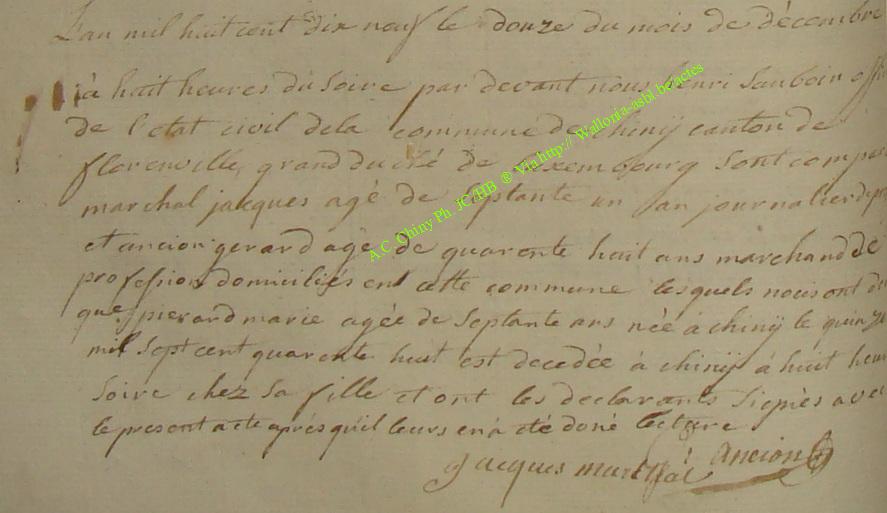 L'an mil huit cent dix neuf le douze du mois de décembre
à huit heures du soire par devant nous henri Sauboin offi
de l'etat civil dela commune de chinÿ canton de
florenville, grand duché de Luxembourg sont compa
marchal jacques agé de septante un an journalier de
et ancion gerard agé de quarente huit ans marchand de
profession domiciliés en cette commune lesquels nous ont d
que pierard marie agée de septante ans née à chinÿ le quinze
mil sept cent quarente huit est decedée à chinÿ à huit heur
soire chez sa fille et ont les declarants signés avec
le present acte aprés qu'il leurs en à été doné lecture
jacques marchal ancion
A.C. Chiny Ph JC/HB ® Via http:// Wallonia-asbl.be/actes